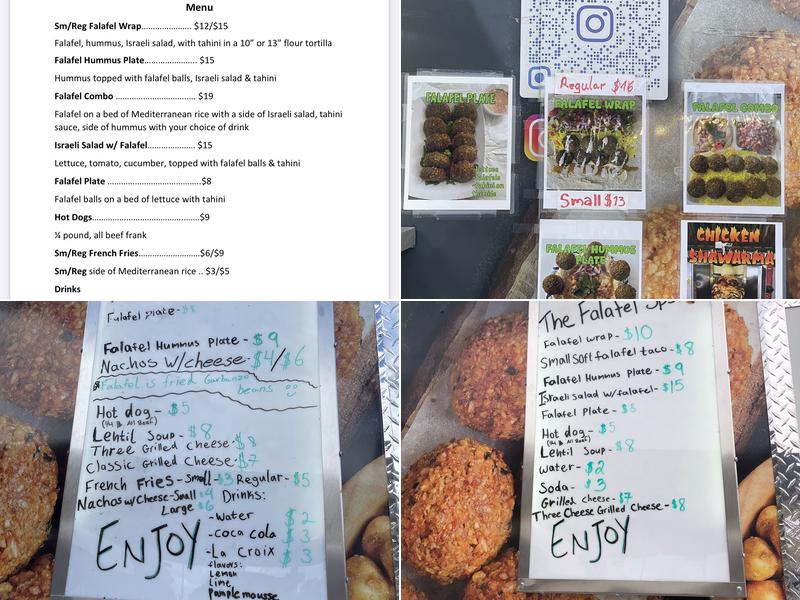 Menu
Sm/Reg Falafel Wrap..................... $12/$15
Falafel, hummus, Israeli salad, with tahini in a 10” or 13” flour tortilla
Falafel Hummus Plate..................... $15
Hummus topped with falafel balls, Israeli salad & tahini
Falafel Combo ............................ $19
Falafel on a bed of Mediterranean rice with a side of Israeli salad, tahini
sauce, side of hummus with your choice of drink
Israeli Salad w/ Falafel.................. $15
Lettuce, tomato, cucumber, topped with falafel balls & tahini
Falafel Plate ................................$8
Falafel balls on a bed of lettuce with tahini
Hot Dogs.....................................$9
¼ pound, all beef frank
Sm/Reg French Fries.....................$6/$9
Sm/Reg side of Mediterranean rice .. $3/$5
Drinks
FALAFEL PLATE
Regular $16
FALAFEL WRAP
Small $13
FALAFEL COMBO
FALAFEL HUMMUS
PLATE
CHICKEN
SHAWARMA
Falafel Plate-$8
Falafel Hummus Plate - $9
Nachos W/cheese - $4/$6
Falafel is fried Garbanzo
beans
Hot dog - $5
(1/4 lb All Beef)
Lentil Soup - $8
Three Grilled Cheese - $8
Classic Grilled Cheese - $7
French Fries - Small - $3 Regular - $5
Nachos w/Cheese - Small $4
Large $6
Drinks:
- Water $2
- coca cola $3
- La Croix $3
flavors:
Lemon
Lime
Pamplemousse
ENJOY
The Falafel
Falafel wrap - $10
Small Soft falafel taco - $8
Falafel Hummus Plate - $9
Israeli Salad w/falafel - $15
Falafel Plate - $8
Hot dog - $5
(1/4 lb All Beef)
Lentil Soup - $8
Water - $2
Soda - $3
Grilled Cheese - $7
Three Cheese Grilled Cheese - $8
ENJOY